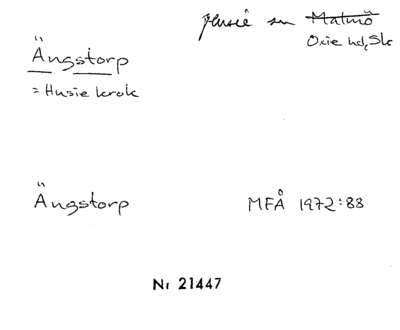 Husie sn Malmö
Oxie hd, Sk
Ängstorp
= Husie krok
Ängstorp
MFÅ 1972:88
Nr 21447